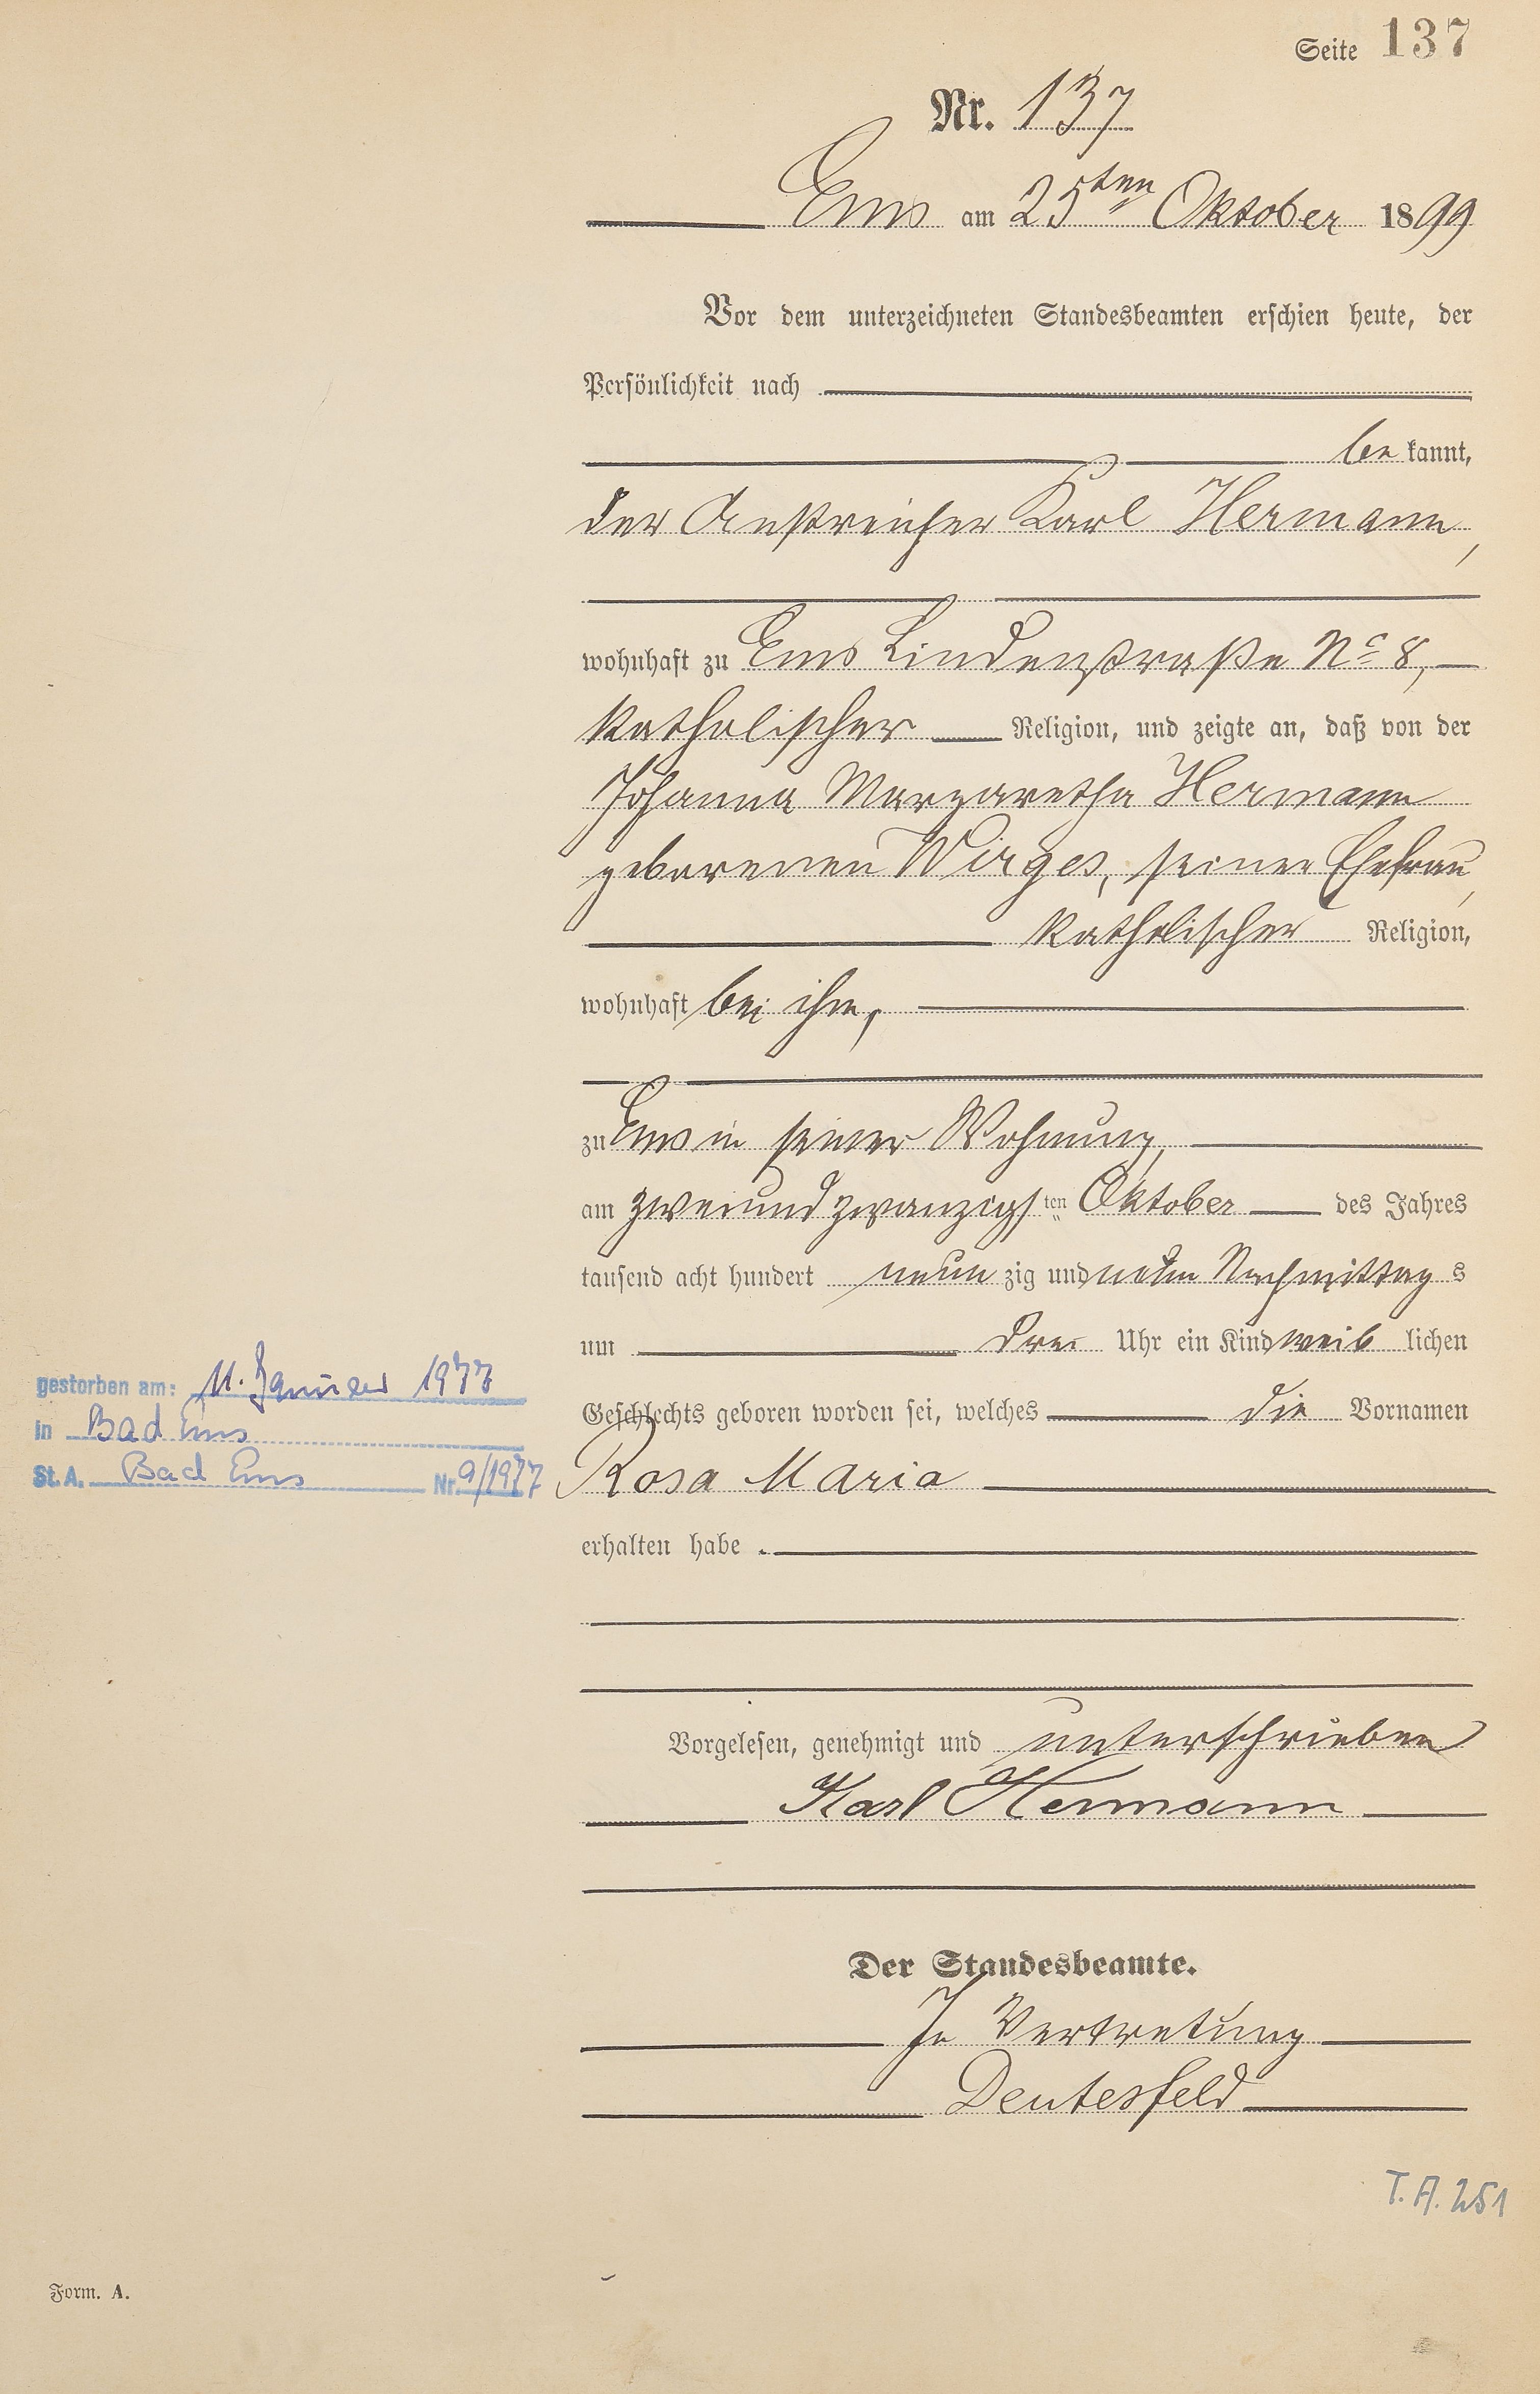 Seite 137
Nr. 137
Ems am 25ten Oktober 1899
Vor dem unterzeichneten Standesbeamten erschien heute, der
Persönlichkeit nach
bekannt,
der Anstreicher Karl Hermann,
wohnhaft zu Ems Lindenstraße No 8,
katholischer Religion, und zeigte an, daß von der
Johanna Margaretha Hermann
geborenen Wirges, seiner Ehefrau,
katholischer Religion,
wohnhaft bei ihm,
zu Ems in seiner Wohnung,
am zweiundzwanzigsten Oktober des Jahres
tausend acht hundert neunzig und neun Nachmittags
um drei Uhr ein Kind weiblichen
Geschlechts geboren worden sei, welches die Vornamen
gestorben am: 11. Januar 1977
in Bad Ems
St. A. Bad Ems Nr. 9/1977
Rosa Maria
erhalten habe.
Vorgelesen, genehmigt und unterschrieben
Karl Hermann
Der Standesbeamte.
In Vertretung
Deutesfeld
T. A. 251
Form. A.